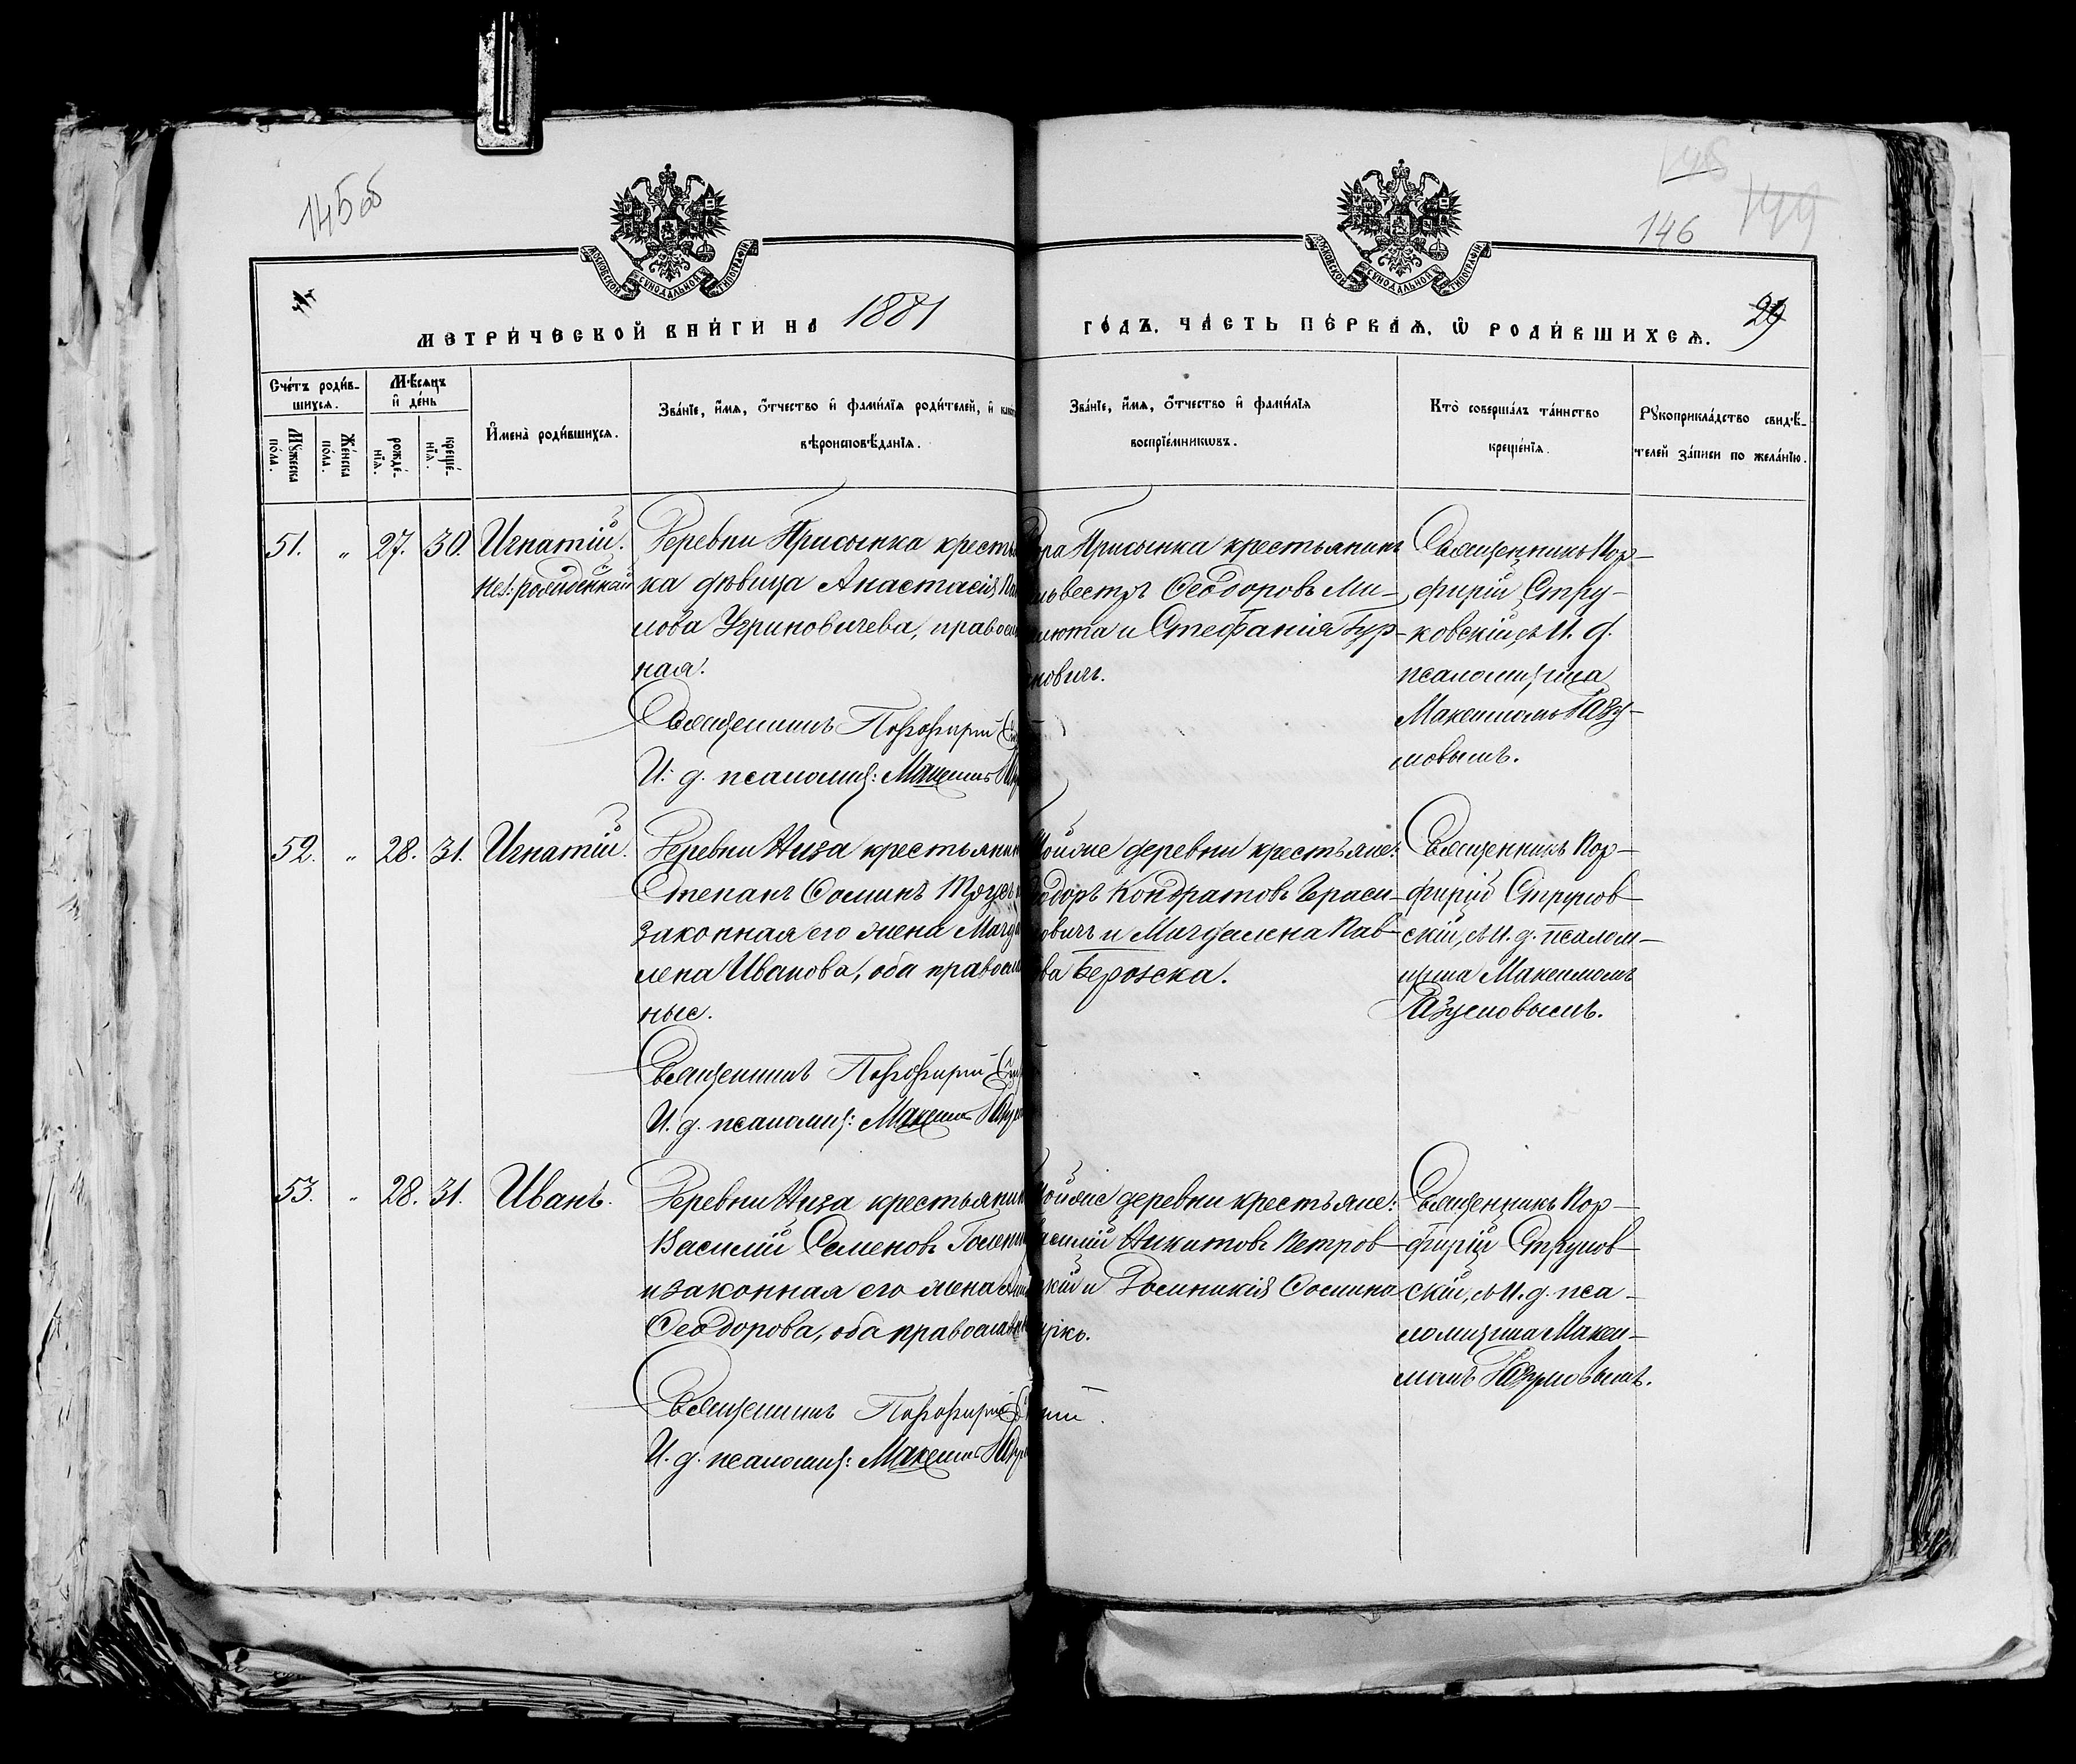 145 об
146
МОСКОВСКОЙ СУНОДАЛЬНОЙ ТИПОГРАФІИ
МОСКОВСКОЙ СУНОДАЛЬНОЙ ТИПОГРАФІИ
29
МЕТРИЧЕСКОЙ КНИГИ НА 1881
ГОДЪ. ЧАСТЬ ПЕРВАЯ. Ѿ РОДИВШИХСЯ.
Счетъ родив-
шихся.
Мѣсяцъ
и день
Мужеска пола.
Женска пола.
рожде-
нія.
креще-
нія.
Имена родившихся.
Званіе, имя, отчество и фамилія родителей, и
вѣроисповѣданія.
Званіе, имя, отчество и фамилія
воспріемниковъ.
Кто совершалъ таинство
крещенія.
Рукоприкладство свидѣ-
телей записи по желанію.
51. „ 27. 30. Игнатій.
Деревни Присынка кресть
ка дѣвица Анастасія
лова Угриновичева, правос
ная.
Священникъ Порфирій
И. д. псаломщ: Максимъ
Присынка крестьянинъ
Ѳеодоровъ Ми-
люта и Стефанія Гур-
новичъ.
Священникъ Пор-
фирій Стру-
ковскій, съ И. д.
псаломщика
Максимомъ Разу-
мовымъ.
52. „ 28. 31. Игнатій.
Деревни Низа крестьянин
Степанъ Ѳоминъ
законная его жена Магда
лена Иванова, оба правосл
ные.
Священникъ Порфирій
И. д. псаломщ: Максимъ
Тойже деревни крестьяне:
Кондратовъ Гераси-
овичъ и Магдалена Пав-
ва Березска.
Священникъ Пор-
фирій Струков-
скій, съ И. д. псалом-
щика Максимомъ
Разумовымъ.
53. „ 28. 31. Иванъ.
Деревни Низа крестьянин
Василій Семеновъ
и законная его жена
Ѳеодорова, оба православн
Священникъ Порфирій
И. д. псаломщ: Максимъ
Тойже деревни крестьяне:
Василій Никитовъ Петров-
скій и Домникія Ѳомина
Священникъ Пор-
фирій Струков-
скій, съ И. д. пса-
ломщика Макси-
момъ Разумовымъ.